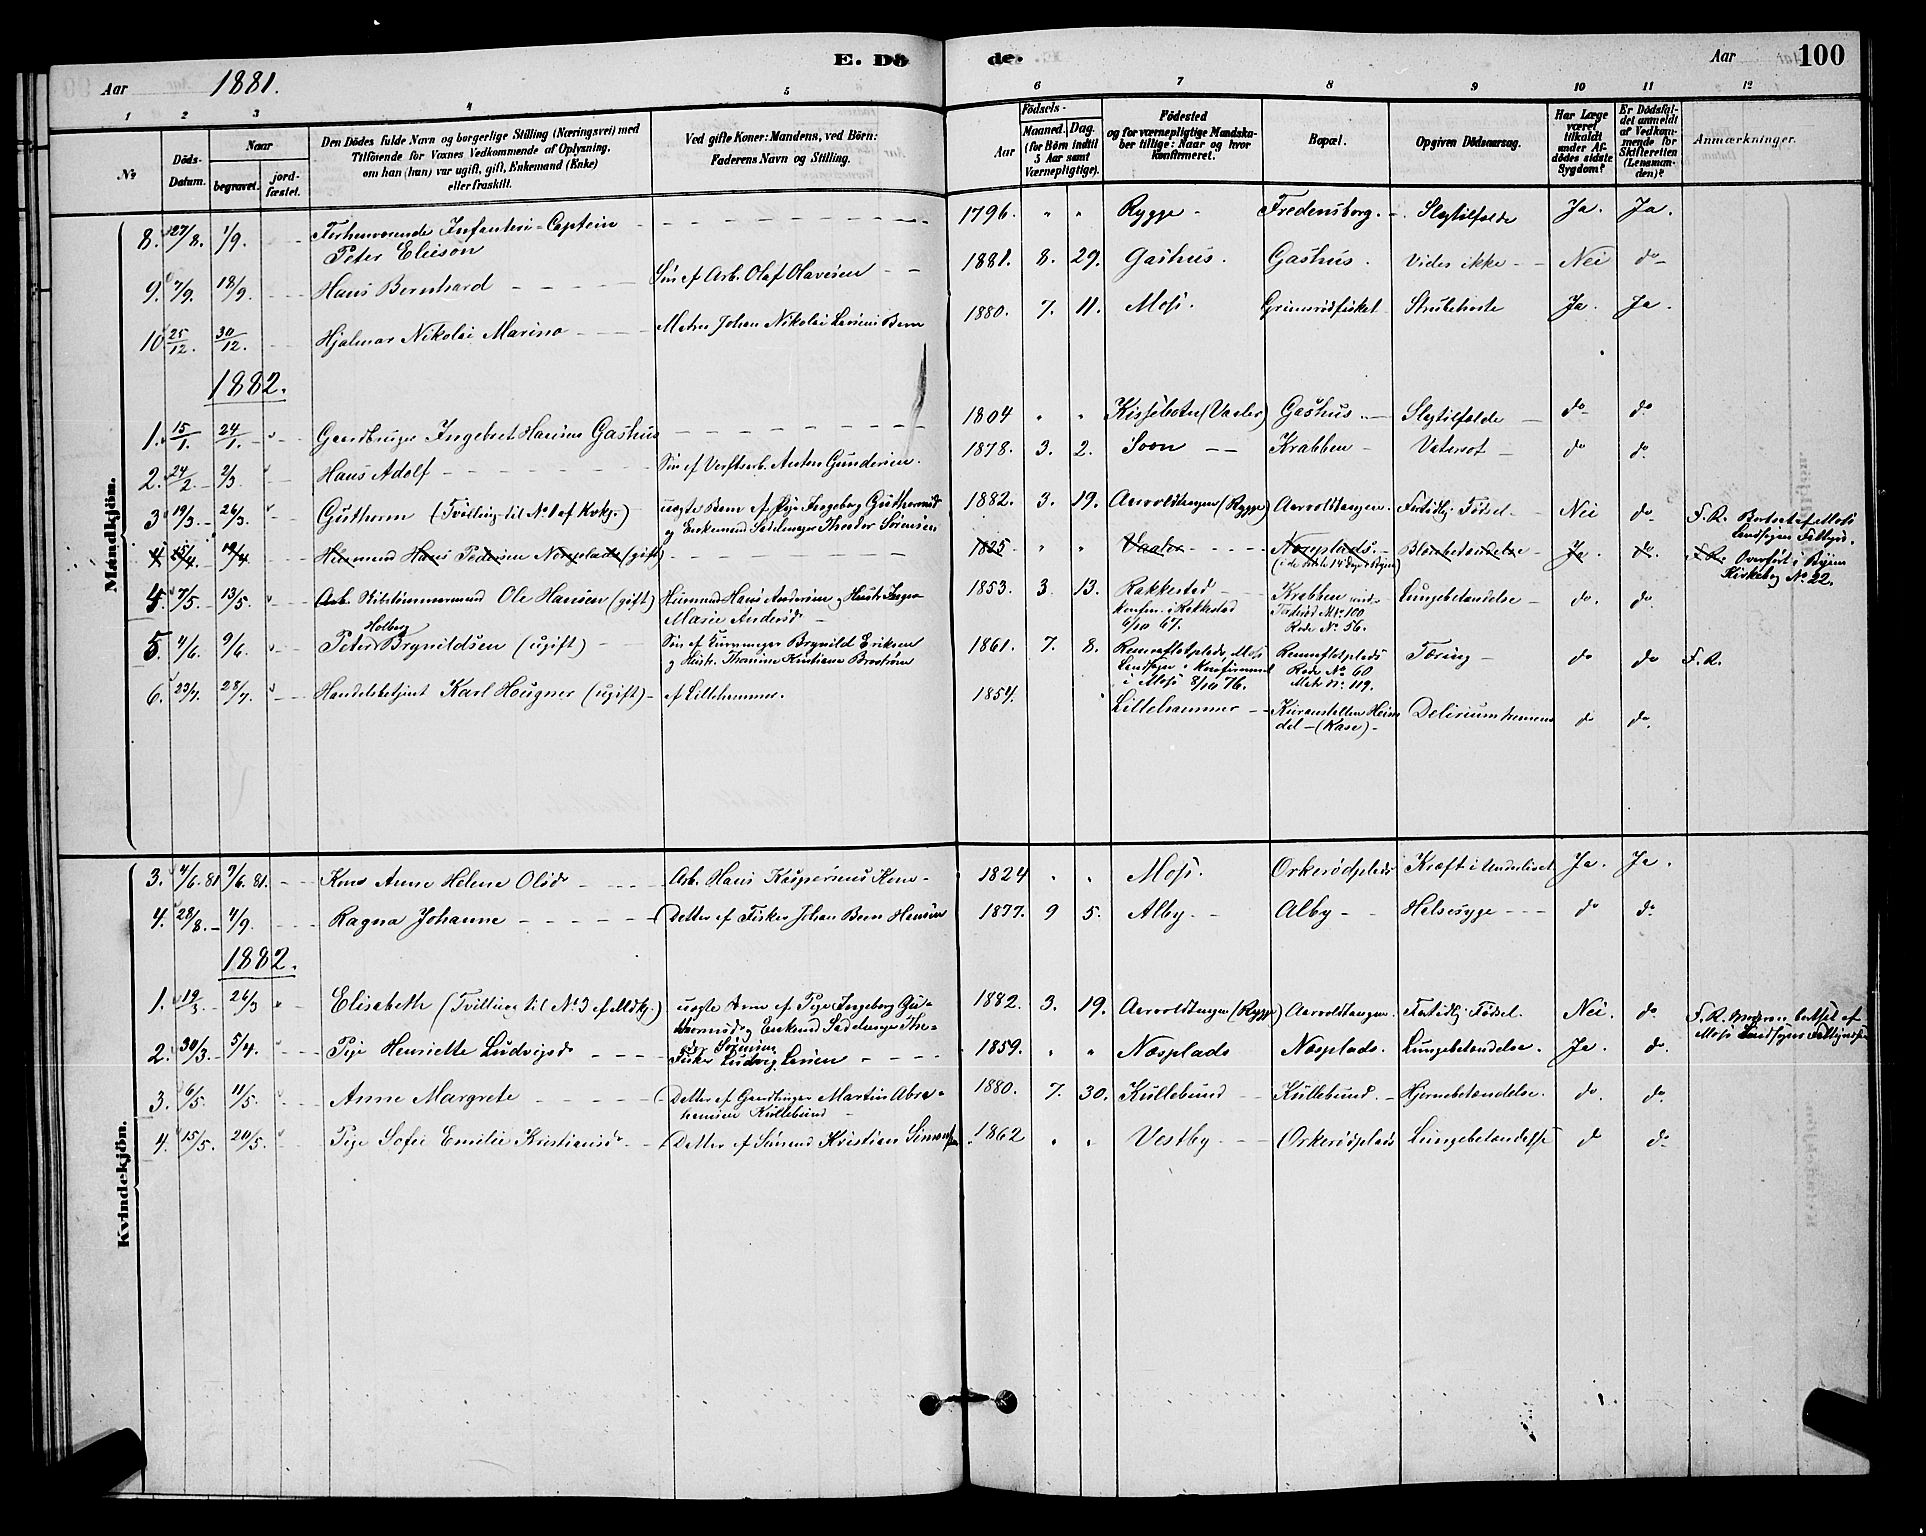 E. Döde.
Aar 1881.
Aar 100
1 2 3 4 5 6 7 8 9 10 11 12
No
Döds-Datum.
Naar
begravet.
jordfæstet.
Den Dödes fulde Navn og borgerlige Stilling (Næringsvei) med
Tilföiende for Voxnes Vedkommende af Oplysning,
om han (hun) var ugift, gift, Enkemand (Enke)
eller fraskilt.
Ved gifte Koner: Mandens, ved Börn:
Faderens Navn og Stilling.
Födsels-
Aar Maaned. Dag.
(for Börn indtil
5 Aar samt
Værnepligtige).
Födested
og for værnepligtige Mandskaber tillige: Naar og hvor
konfirmeret.
Bopæl.
Opgiven Dödsaarsag.
Har Læge
været
tilkaldt
under Afdödes sidste
Sygdom?
Er Dödsfaldet anmeldt
af Vedkommende for
Skifteretten
(Lensmanden)?
Anmærkninger.
Mandkjön.
8. 27/8. 1/9. Forhenværende Infanteri-Captein 1796. " " Rygge - Fredensborg. - Slagtilfælde Ja. Ja.
Peter Elieson
9. 7/9. 18/9. Hans Bernhard Sön af Arb. Olaf Olavesen 1881. 8. 29. Gashus. Gashus. Vides ikke Nei do
10 25/12. 30/12. Hjalmar Nikolai Marino Johan Nikolai Barn 1880. 7. 11. Moss. Strubehoste Ja. Ja.
1882.
1. 15/1. 24/1. Gaardbruger Ingebret Hansen Gashus 1804 " " (Vaaler) Gashus. Slagtilfælde do do
2. 24/2. 2/3. Hans Adolf Sön af Verftsarb. Anton Gundersen. 1878. 3. 2. Soon Krabben Vatersot do do.
3 19/3. 26/3. Guthorm (Tvilling til No 1 af Kvkj.) uægte Barn af Pige Ingeborg Guthormsd 1882. 3. 19. Aarvoldtangen (Rygge) Aarvoldtangen. Fortidlig Fødsel Nei do. F. R. Bortsat af Moss
og Enkemand Sadelmager Theodor Sörensen Landsogns Fattigv.
4 15/4. 19/4 Husmand Hans Pedersen Næsplads (gift) 1825 " " Vaaler Næsplads. Blærebetændelse Ja. do. F. R. Overført i Byens
(i de siste 14 Dage i Byen) Kirkebog No 22.
4. 7/5. 13/5. Arb. Skibstømmermand Ole Hansen (gift) Husmand Hans Andersen og Hustr. Inger 1853. 3. 13. Rakkestad Krabben under Lungebetændelse do. do.
Marie Andersd konfirm. i Rakkestad Mtr. No. 100
6/10 67. Rode No 56.
5. 4/6. 9/6. Peter Holberg Brynildsen (ugift) Sön af Brynild Eriksen 1861. 7. 8. Moss Tæring do do F. R.
og Hustr. Thomine Kristiane Broström Landsogn. Konfirmeret Rode No 60
i Moss 8/10 76. Matr. Nr. 119.
6. 23/7. 28/7. Handelsbetjent Karl Hougner (ugift) af Lillehammer. 1854. Lillehammer Kuranstalten Heimdal (Kase) Deliriumtremens do do.
Kvindekjön.
3. 4/6. 81 9/6. 81. Kone Anne Helene Olsd Arb. Hans Kaspersens Kone 1824 " " Moss. Orkerødplads Kræft i Underlivet Ja. Ja.
4. 28/8. 4/9. Ragna Johanne Datter af Fisker Johan Bern Hansen 1877. 9 5. Alby. Alby Halsesyge do do.
1882.
1. 19/3. 26/3 Elisabeth (Tvilling til No 3 af Mdkj.) uægte Barn af Pige Ingeborg Gu- 1882. 3. 19. Aarvoldtangen (Rygge) Aarvoldtangen. Fortidlig Fødsel. Nei. do. F. R. Moderen bortsat af
thormsd og Enkemd Sadelmager The- Moss Landsogns Fattigvæsen
odor Sörensen
2. 30/3. 5/4. Pige Henriette Ludvigsd Fisker Ludvig Larsen 1859. " " Næsplads Næsplads. Lungebetændelse. Ja. do.
3. 6/5. 11/5. Anne Margrete Datter af Gaardbruger Martin Abra- 1880. 7. 30. Kullebund Kullebund. Hjernebetændelse. do. do.
hamsen Kullebund
4. 15/5. 20/5. Pige Sofie Emilie Kristiansd Datter af Kristian Simonsen 1862 " " Vestby Orkerødplads Lungebetændelse do do